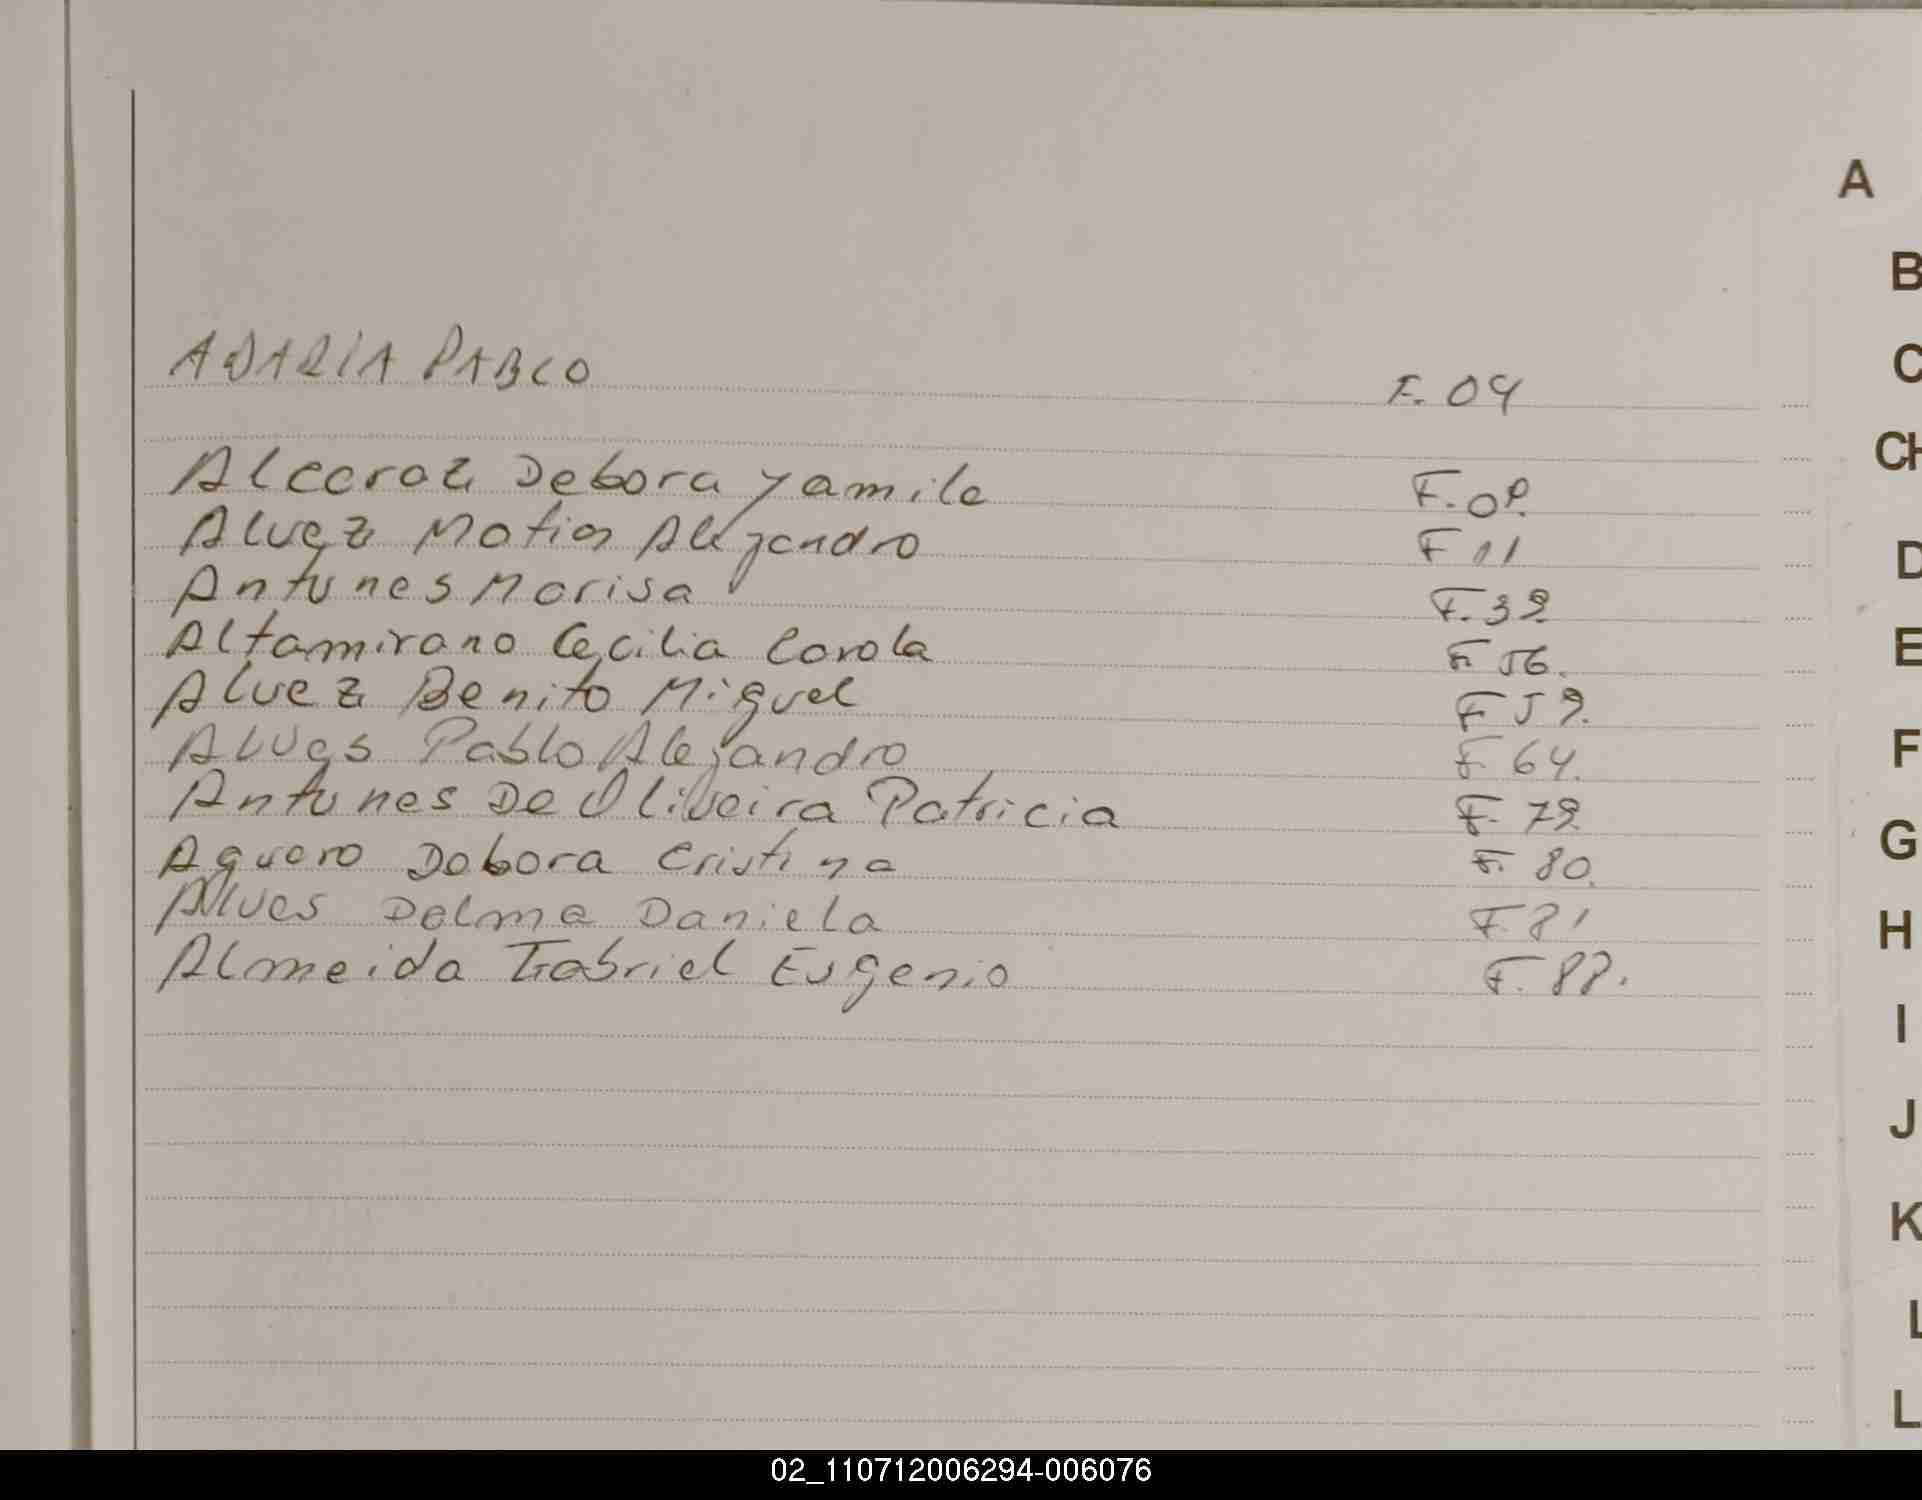 A
B
C
CH
D
E
F
G
H
I
J
K
L
L
ADARIA PABLO F. 04
Alcaraz Debora Yamile F. 08.
Alvez Matias Alejandro F 11
Antunes Marisa F. 39
Altamirano Cecilia Carola F 56.
Alvez Benito Miguel F 59.
Alves Pablo Alejandro F 64.
Antunes De Oliveira Patricia F. 79
Aguero Debora Cristina F. 80.
Alves Delma Daniela F. 81
Almeida Gabriel Eugenio F. 88.
02_110712006294-006076